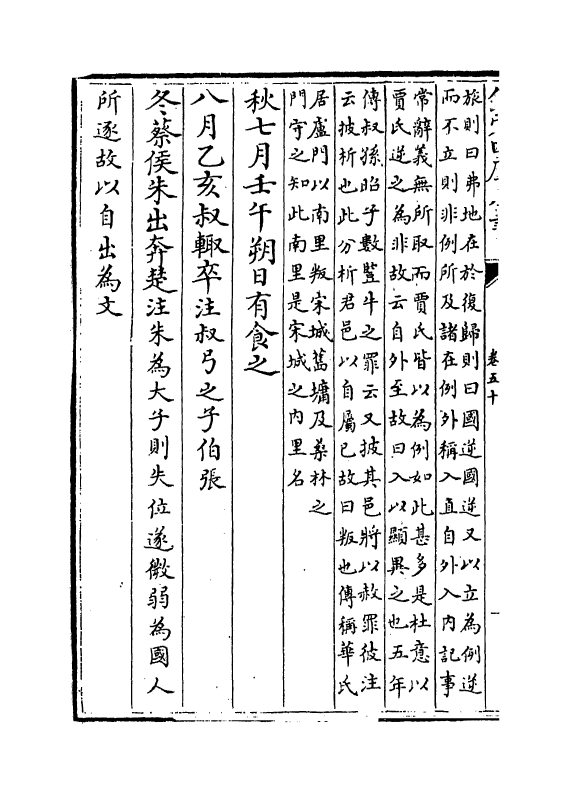 卷五十
旅則曰弗地在於復歸則曰國逆國逆又以立為例逆
而不立則非例所及諸在例外稱入直自外入內記事
常辭義無所取而賈氏皆以為例如此甚多是杜意以
賈氏逆之為非故云自外至故曰入以顯異之也五年
傳叔孫昭子數豎牛之罪云又披其邑將以赦罪彼注
云披析也此分析君邑以自屬已故曰叛也傳稱華氏
居盧門以南里叛宋城舊墉及桑林之
門守之知此南里是宋城之內里名
秋七月壬午朔日有食之
八月乙亥叔輙卒注叔弓之子伯張
冬蔡侯朱出奔楚注朱為大子則失位遂微弱為國人
所逐故以自出為文